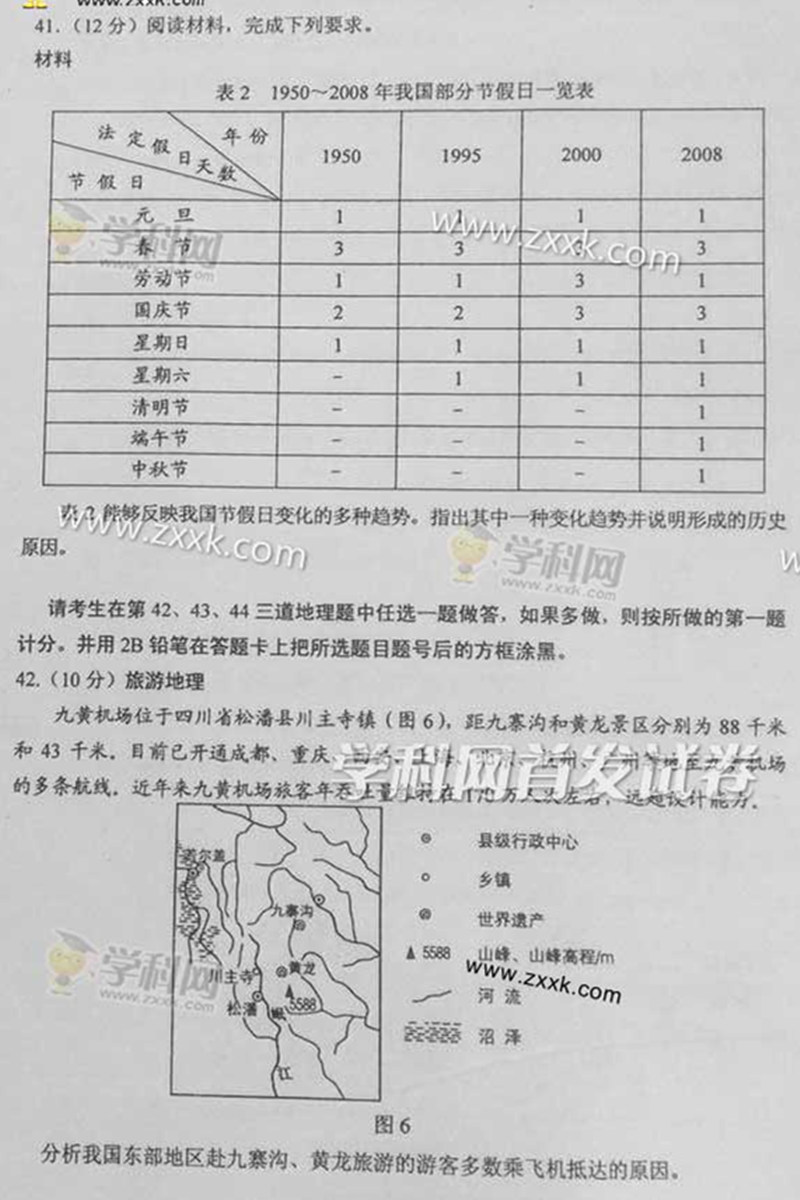 www.zxxk.com
41.（12 分）阅读材料，完成下列要求。
材料
表 2　1950～2008 年我国部分节假日一览表
法定假日天数 年份 节假日 1950 1995 2000 2008
元旦 1 1 1 1
春节 3 3 3 3
劳动节 1 1 3 1
国庆节 2 2 3 3
星期日 1 1 1 1
星期六 – 1 1 1
清明节 – – – 1
端午节 – – – 1
中秋节 – – – 1
学科网
www.zxxk.com
表 2 能够反映我国节假日变化的多种趋势。指出其中一种变化趋势并说明形成的历史
原因。
www.zxxk.com
学科网
www.zxxk.com
请考生在第 42、43、44 三道地理题中任选一题做答，如果多做，则按所做的第一题
计分。并用 2B 铅笔在答题卡上把所选题目题号后的方框涂黑。
42.（10 分）旅游地理
九黄机场位于四川省松潘县川主寺镇（图 6），距九寨沟和黄龙景区分别为 88 千米
和 43 千米。目前已开通成都、重庆、州等地至九黄机场
学科网首发试卷
的多条航线。近年来九黄机场旅客年吞吐量维持在 170 万人次左右，远超设计能力。
若尔盖
九寨沟
川主寺
黄龙
5588
松潘
岷
江
县级行政中心
乡镇
世界遗产
5588 山峰、山峰高程/m
www.zxxk.com
河流
沼泽
学科网
www.zxxk.com
图 6
分析我国东部地区赴九寨沟、黄龙旅游的游客多数乘飞机抵达的原因。